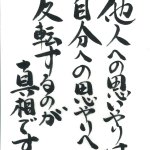 他人への思いやりは
自分への思いやりへ
反転するのが
真相です